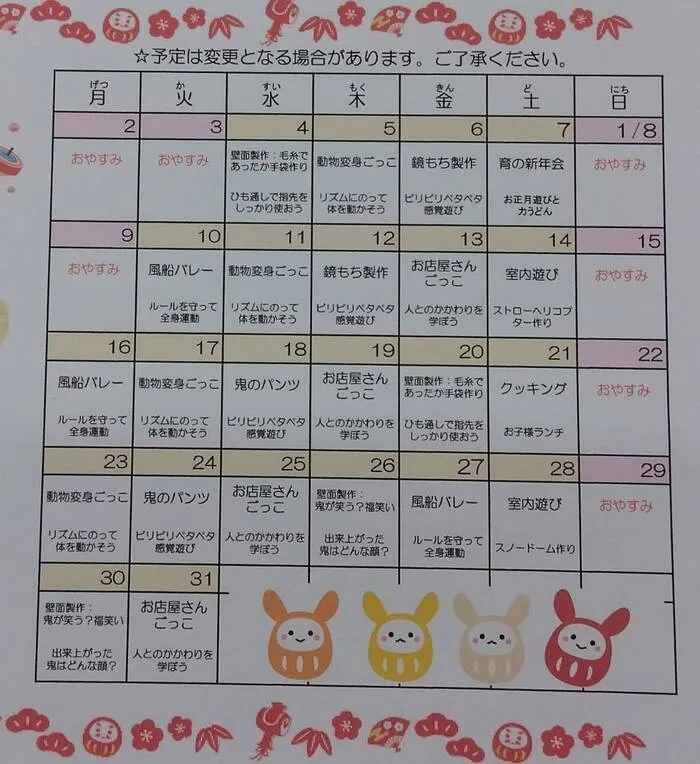 ☆予定は変更となる場合があります。ご了承ください。
げつ か すい もく きん ど にち
月 火 水 木 金 土 日
2 3 4 5 6 7 1/8
おやすみ
おやすみ
壁面製作：毛糸で
あったか手袋作り
ひも通しで指先を
しっかり使おう
動物変身ごっこ
リズムにのって
体を動かそう
鏡もち製作
ビリビリペタペタ
感覚遊び
育の新年会
お正月遊びと
力うどん
おやすみ
9 10 11 12 13 14 15
おやすみ
風船バレー
ルールを守って
全身運動
動物変身ごっこ
リズムにのって
体を動かそう
鏡もち製作
ビリビリペタペタ
感覚遊び
お店屋さん
ごっこ
人とのかかわりを
学ぼう
室内遊び
ストローヘリコプ
ター作り
おやすみ
16 17 18 19 20 21 22
風船バレー
ルールを守って
全身運動
動物変身ごっこ
リズムにのって
体を動かそう
鬼のパンツ
ビリビリペタペタ
感覚遊び
お店屋さん
ごっこ
人とのかかわりを
学ぼう
壁面製作：毛糸で
あったか手袋作り
ひも通しで指先を
しっかり使おう
クッキング
お子様ランチ
おやすみ
23 24 25 26 27 28 29
動物変身ごっこ
リズムにのって
体を動かそう
鬼のパンツ
ビリビリペタペタ
感覚遊び
お店屋さん
ごっこ
人とのかかわりを
学ぼう
壁面製作：
鬼が笑う？福笑い
出来上がった
鬼はどんな顔？
風船バレー
ルールを守って
全身運動
室内遊び
スノードーム作り
おやすみ
30 31
壁面製作：
鬼が笑う？福笑い
出来上がった
鬼はどんな顔？
お店屋さん
ごっこ
人とのかかわりを
学ぼう